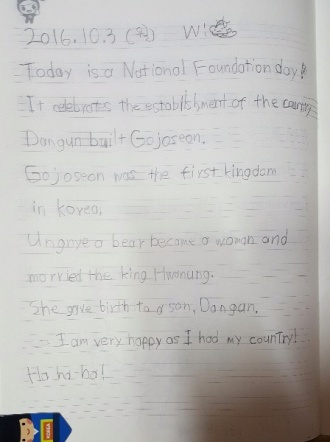 2016.10.3 (월) W:
Today is a National Foundation day!
It celebrates the establishment of the country
Dangun built Gojoseon.
Gojoseon was the first kingdom
in Korea.
Ungnye a bear became a woman and
married the king Hwanung.
She gave birth to a son, Dangan.
I am very happy as I had my country!
Ha ha-ha!